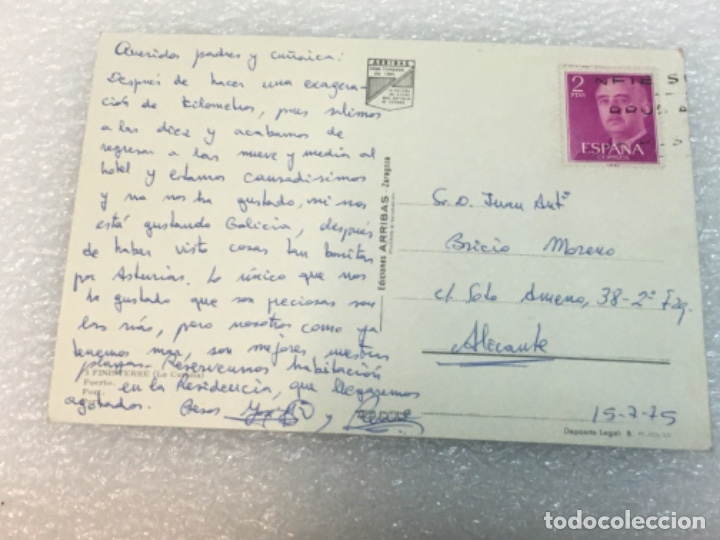 Queridos padres y cuñaica:
Después de hacer una exagera-
ción de kilometros, pues salimos
a las diez y acabamos de
regresar a las nueve y media al
hotel y estamos cansadísimos
y no nos ha gustado, ni nos
está gustando Galicia, después
de haber visto cosas tan bonitas
por Asturias. Lo único que nos
ha gustado que son preciosas son
las rías, pero nosotros como ya
tenemos mar, son mejores nuestras
playas. Reservemos habitación
en la Residencia, que llegaremos
agotados. Besos y
FINISTERRE (La Coruña)
Puerto.
Port.
ARRIBAS
Ediciones ARRIBAS - Zaragoza
2
PTAS
ESPAÑA
CORREOS
Sr. D. Juan Antº
Bricio Moreno
c/. Soto Ameno, 38-2º Izq.
Alicante
15-7-75
Depósito Legal: B.
todocoleccion
todocoleccion.net